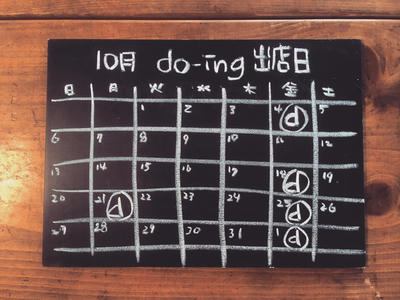 10月 do-ing 出店日
日 月 火 水 木 金 土
1 2 3 4 d 5
6 7 8 9 10 11 12
13 14 15 16 17 18 d 19
20 21 d 22 23 24 25 d 26
27 28 29 30 31 1 d